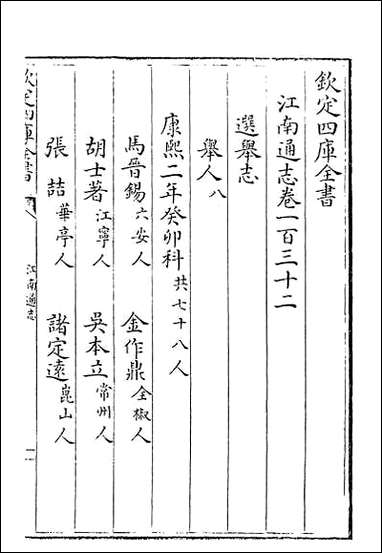 欽定四庫全書
江南通志卷一百三十二
選舉志
舉人八
康熙二年癸卯科共七十八人
馬晉錫六安人 金作鼎全椒人
胡士著江寧人 吳本立常州人
張喆華亭人 諸定遠崑山人
欽定四庫全書
江南通志
一